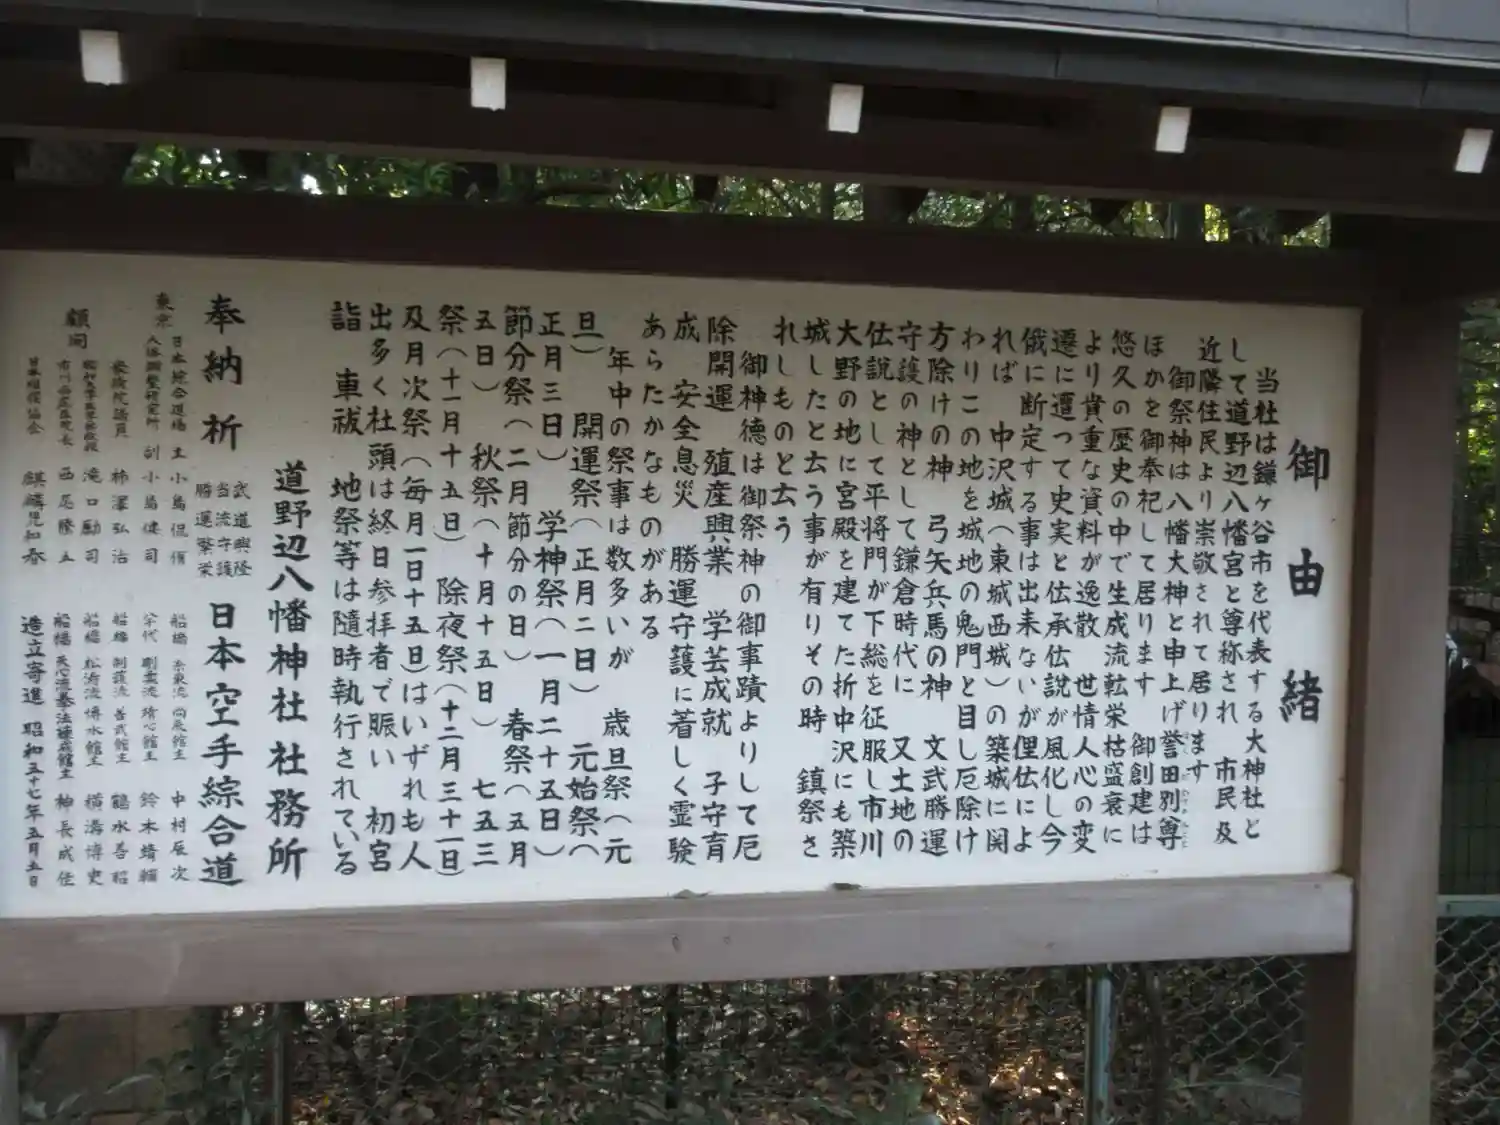 御由緒
当社は鎌ヶ谷市を代表する大神社と
して道野辺八幡宮と尊称され 市民及
近隣住民より崇敬されて居ります
御祭神は八幡大神と申上げ誉田別尊
ほかを御奉祀して居ります 御創建は
悠久の歴史の中で生成流転栄枯盛衰に
より貴重な資料が逸散 世情人心の変
遷に遭って史実と伝承伝説が風化し今
俄に断定する事は出来ないが俚伝によ
れば 中沢城(東城西城)の築城に関
わりこの地を城地の鬼門と目し厄除け
方除けの神 弓矢兵馬の神 文武勝運
守護の神として鎌倉時代に 又土地の
伝説として平将門が下総を征服し市川
大野の地に宮殿を建てた折中沢にも築
城したと云う事が有りその時 鎮祭さ
れしものと云う
御神徳は御祭神の御事蹟よりして厄
除開運 殖産興業 学芸成就 子守育
成 安全息災 勝運守護に著しく霊験
あらたかなものがある
年中の祭事は数多いが 歳旦祭(元
旦) 開運祭(正月二日) 元始祭(
正月三日) 学神祭(一月二十五日)
節分祭(二月節分の日) 春祭(五月
五日) 秋祭(十月十五日) 七五三
祭(十一月十五日) 除夜祭(十二月三十一日)
及月次祭(毎月一日十五日)はいずれも人
出多く社頭は終日参拝者で賑い 初宮
詣 車祓 地祭等は随時執行されている
道野辺八幡神社 社務所
奉納 祈
武道興隆
当流守護
勝運繁栄
日本空手綜合道
東京 日本綜合道場主 小島侃
船橋 糸東流 尚辰館主 中村辰次
副 小島健司
剛柔流 靖心館主 鈴木靖輔
顧問
参議院議員 柿澤弘治
船橋 制護流 善武館主 鶴水善昭
滝口勵司
船橋 松濤流 博水館主 横溝博史
西尾隆五
船橋 神長成任
麒麟児和春
造立寄進 昭和五十七年五月五日